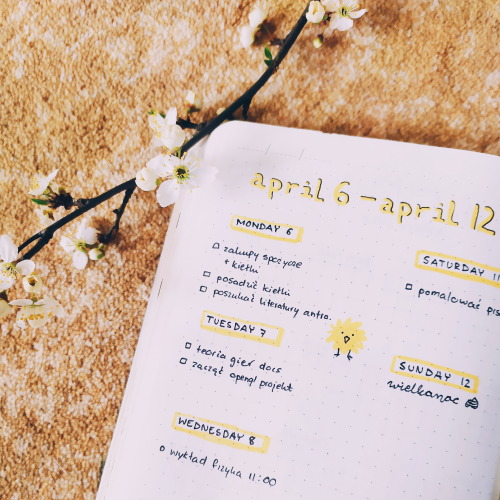 april 6 - april 12
MONDAY 6
zakupy spożycze
+ kiełki
posadzić kiełki
poszukać literatury antro.
TUESDAY 7
teoria gier docs
zacząć opengl projekt
WEDNESDAY 8
wykład fizyka 11:00
SATURDAY 11
pomalować pis
SUNDAY 12
wielkanoc